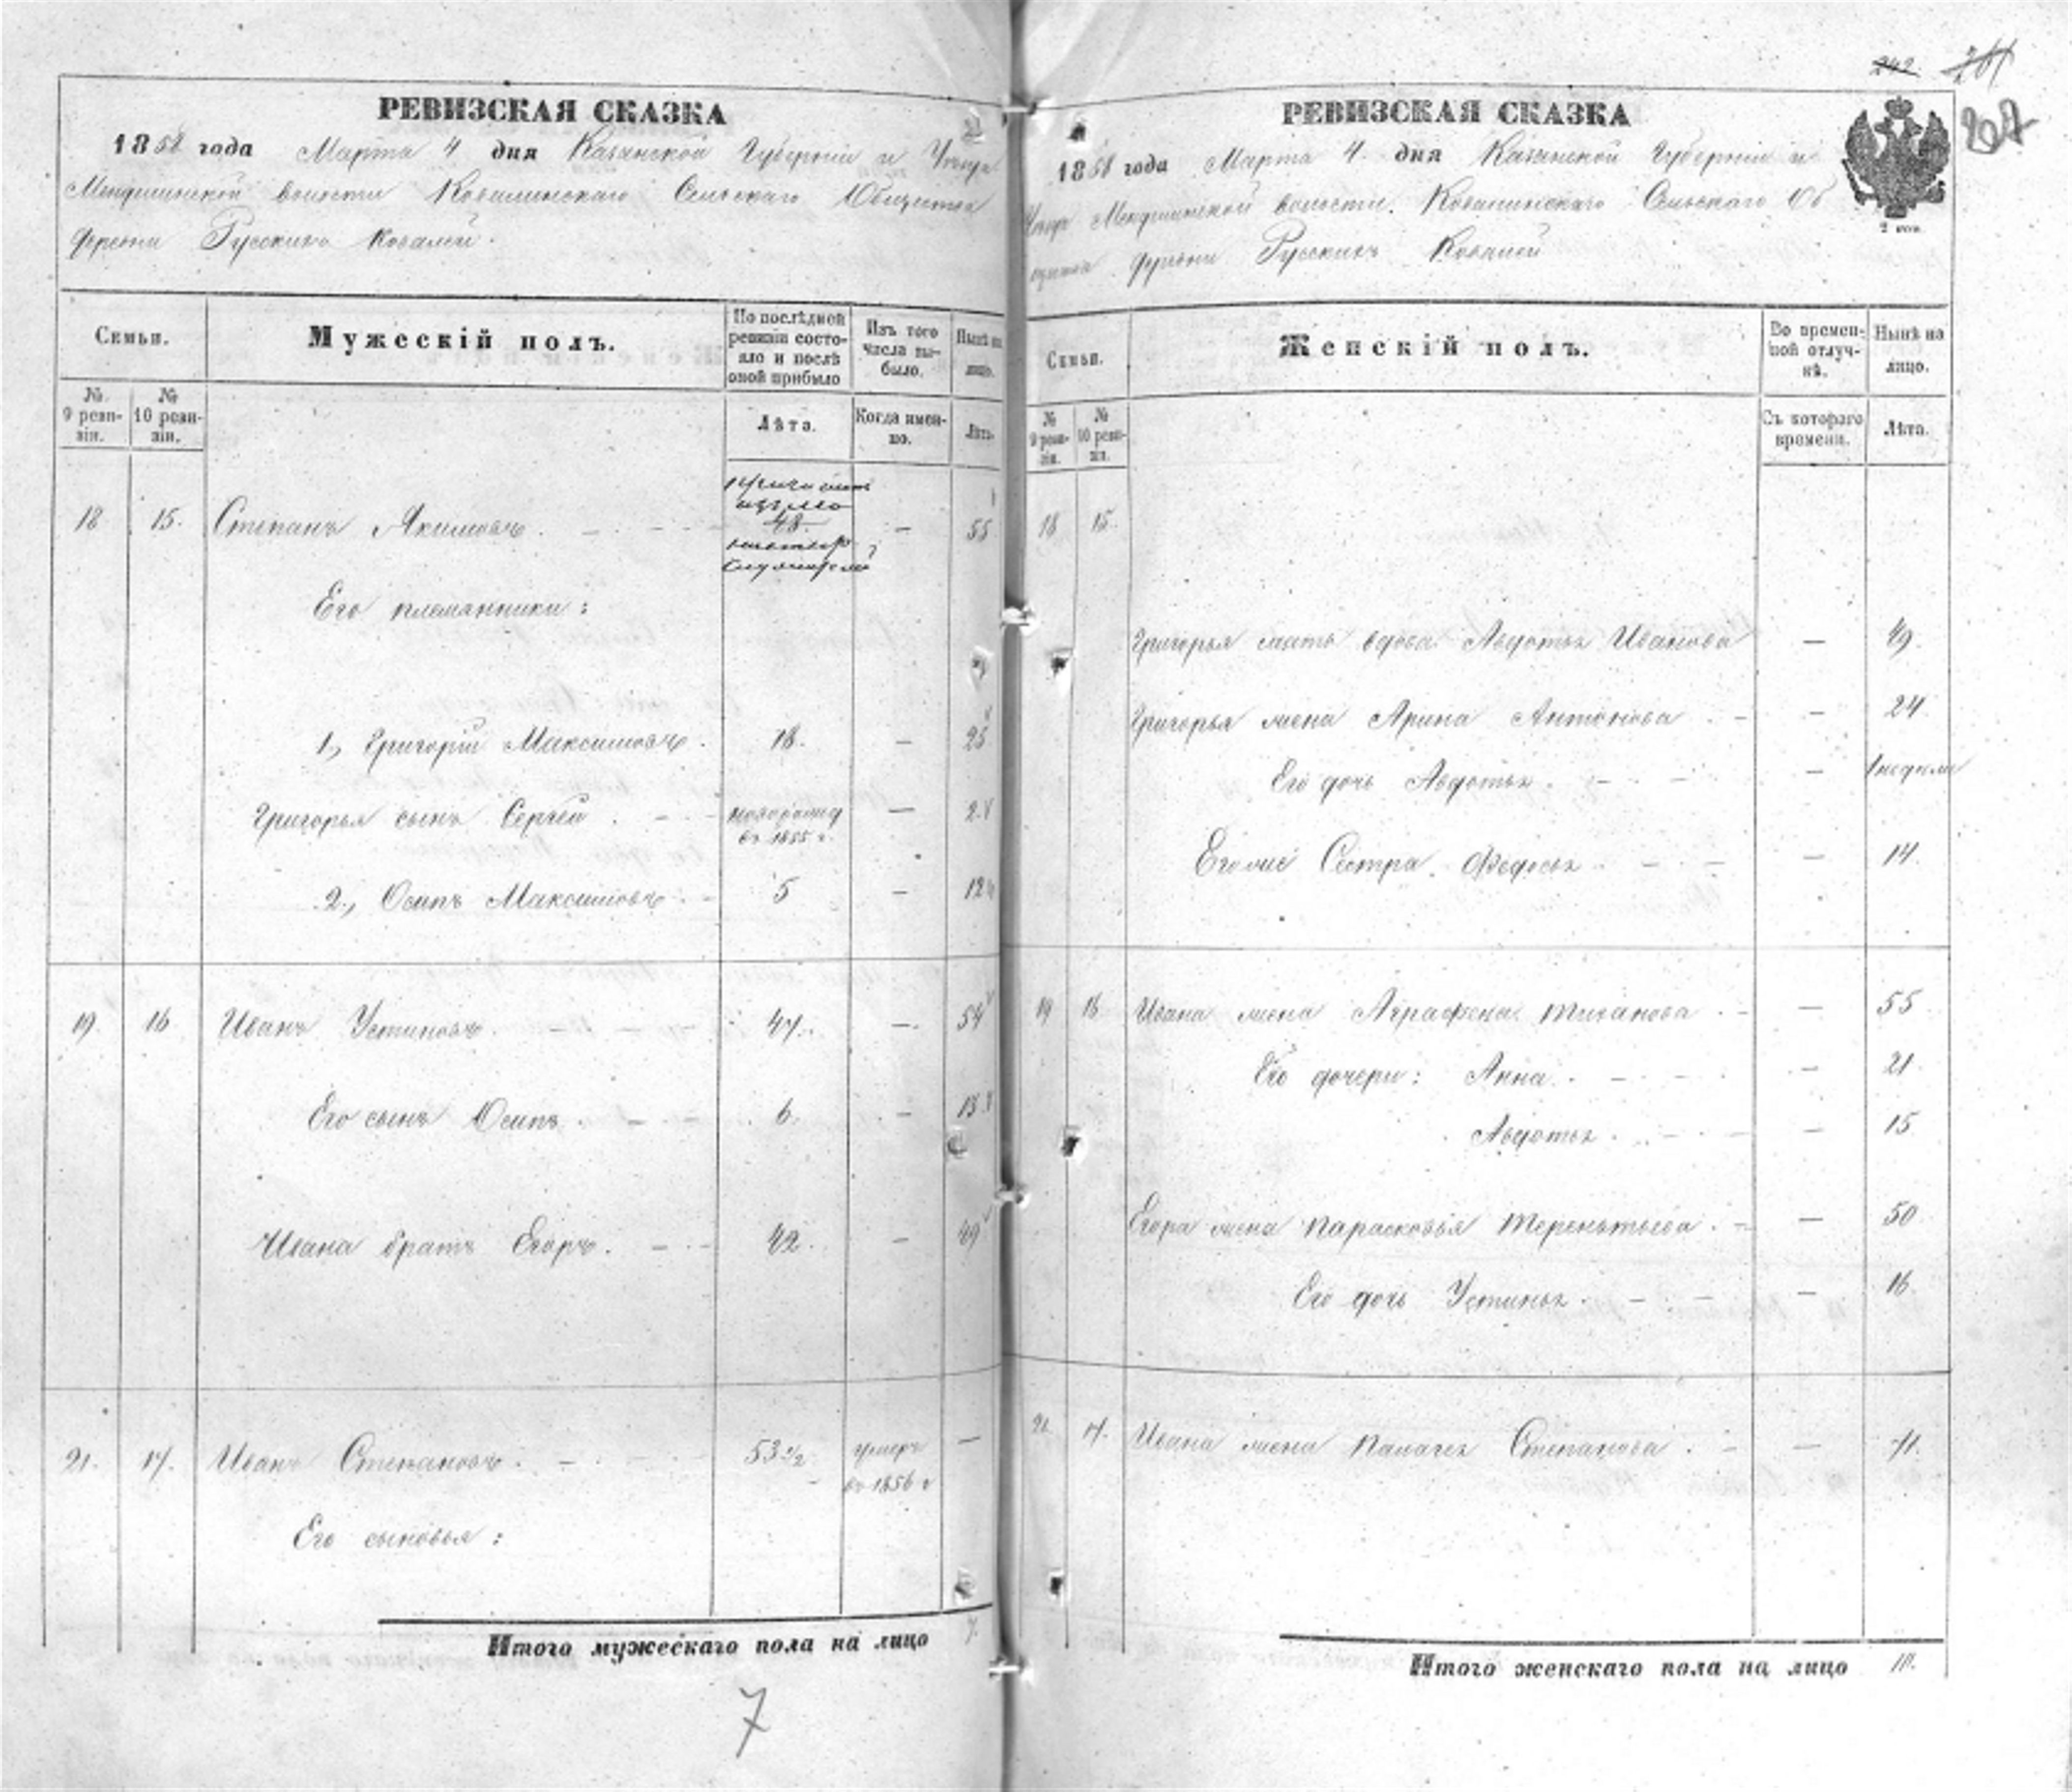 РЕВИЗСКАЯ СКАЗКА
1858 года Марта 4 дня Казанской Губерніи и Уезда
волости Ковалинскаго Сельскаго Общества
деревни Русскихъ Ковалей.
Семьи.
Мужескій полъ.
По послѣдней ревизіи состояло и послѣ оной прибыло
Изъ того числа выбыло.
Нынѣ на лицо.
№ 9 ревизіи.
№ 10 ревизіи.
Лѣта.
Когда именно.
Лѣта.
18. 15. Степанъ Якимовъ. — 48. — 55
Его племянники:
1, Григорій Максимовъ. 18. — 25
Григорья сынъ Сергей. — новорожд въ 1855 г. — 2
2, Осипъ Максимовъ. 5 — 12
19. 16 Иванъ Устиновъ. — 47. — 54
Его сынъ Осипъ. — 6. — 13
Ивана братъ Егоръ. — 42. — 49
21. 17. Иванъ Степановъ. — 53 1/2 умеръ въ 1856 г —
Его сыновья:
Итого мужескаго пола на лицо 7.
7
242
207
РЕВИЗСКАЯ СКАЗКА
1858 года Марта 4. дня Казанской Губерніи и
Уезда волости. Ковалинскаго Сельскаго Об
щества деревни Русскихъ Ковалей
2 коп.
Семьи.
Женскій полъ.
Во временной отлучкѣ.
Нынѣ на лицо.
№ 9 ревизіи.
№ 10 ревизіи.
Съ котораго времени.
Лѣта.
18 15.
Григорья мать вдова Авдотья Иванова — 49.
Григорья жена Арина Антонова — 24
Его дочь Авдотья. — 1 недели
Его же Сестра Федосья — 14.
19 16 Ивана жена Аграфена — 55
Его дочери: Анна. — 21
Авдотья. — 15
Егора жена Парасковья Терентьева. — 50
Его дочь Устинья. — 16
21. 17. Ивана жена Палагея Степанова. —
Итого женскаго пола на лицо 10.